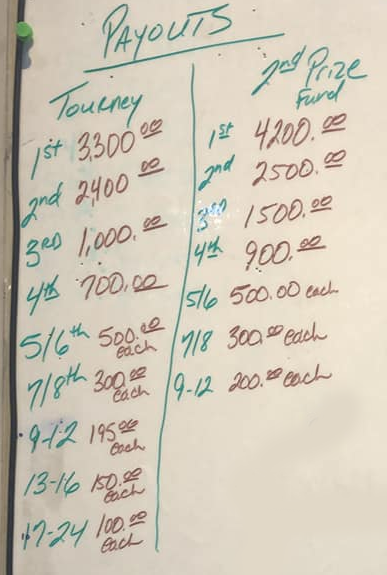 PAYOUTS
Tourney
1st 3,300.00
2nd 2,400.00
3RD 1,000.00
4th 700.00
5/6th 500.00 each
7/8th 300.00 each
9-12 195.00 each
13-16 150.00 each
17-24 100.00 each
2nd Prize Fund
1st 4200.00
2nd 2500.00
3RD 1500.00
4th 900.00
5/6 500.00 each
7/8 300.00 each
9-12 200.00 each